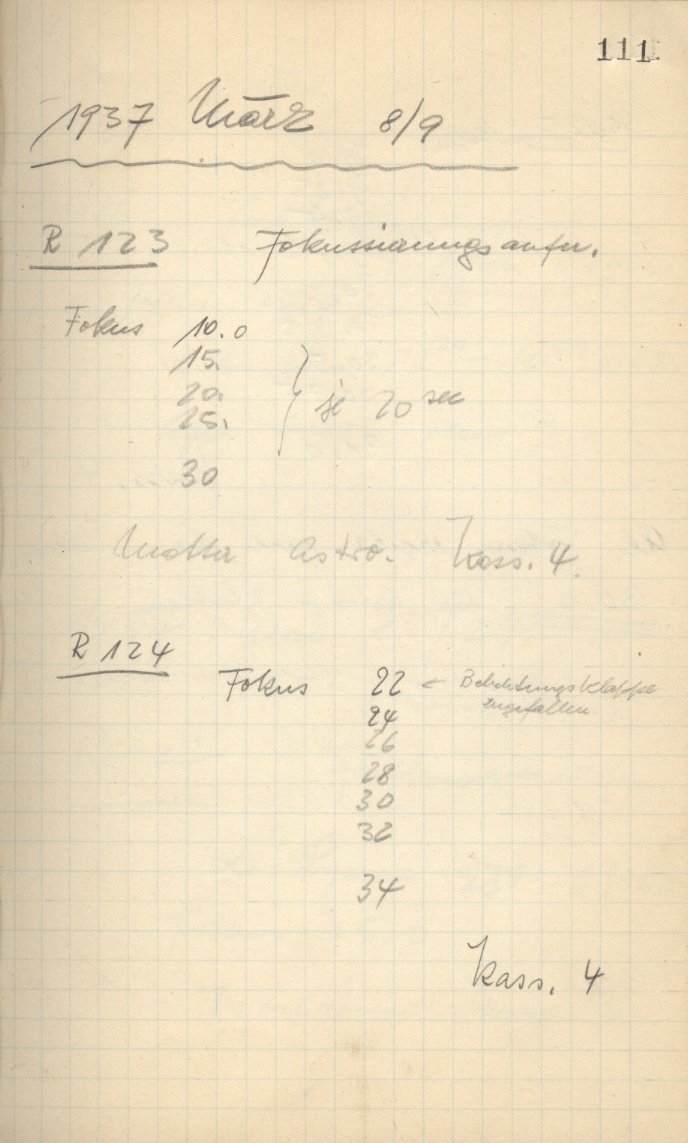 111
1937 März 8/9
R 123 Fokussierungsaufn.
Fokus 10.0
15.
20. } je 20 sec
25.
30
Astro. Kass. 4.
R 124
Fokus 22 ← Belichtungsklappe
zugefallen
24
26
28
30
32
34
Kass. 4